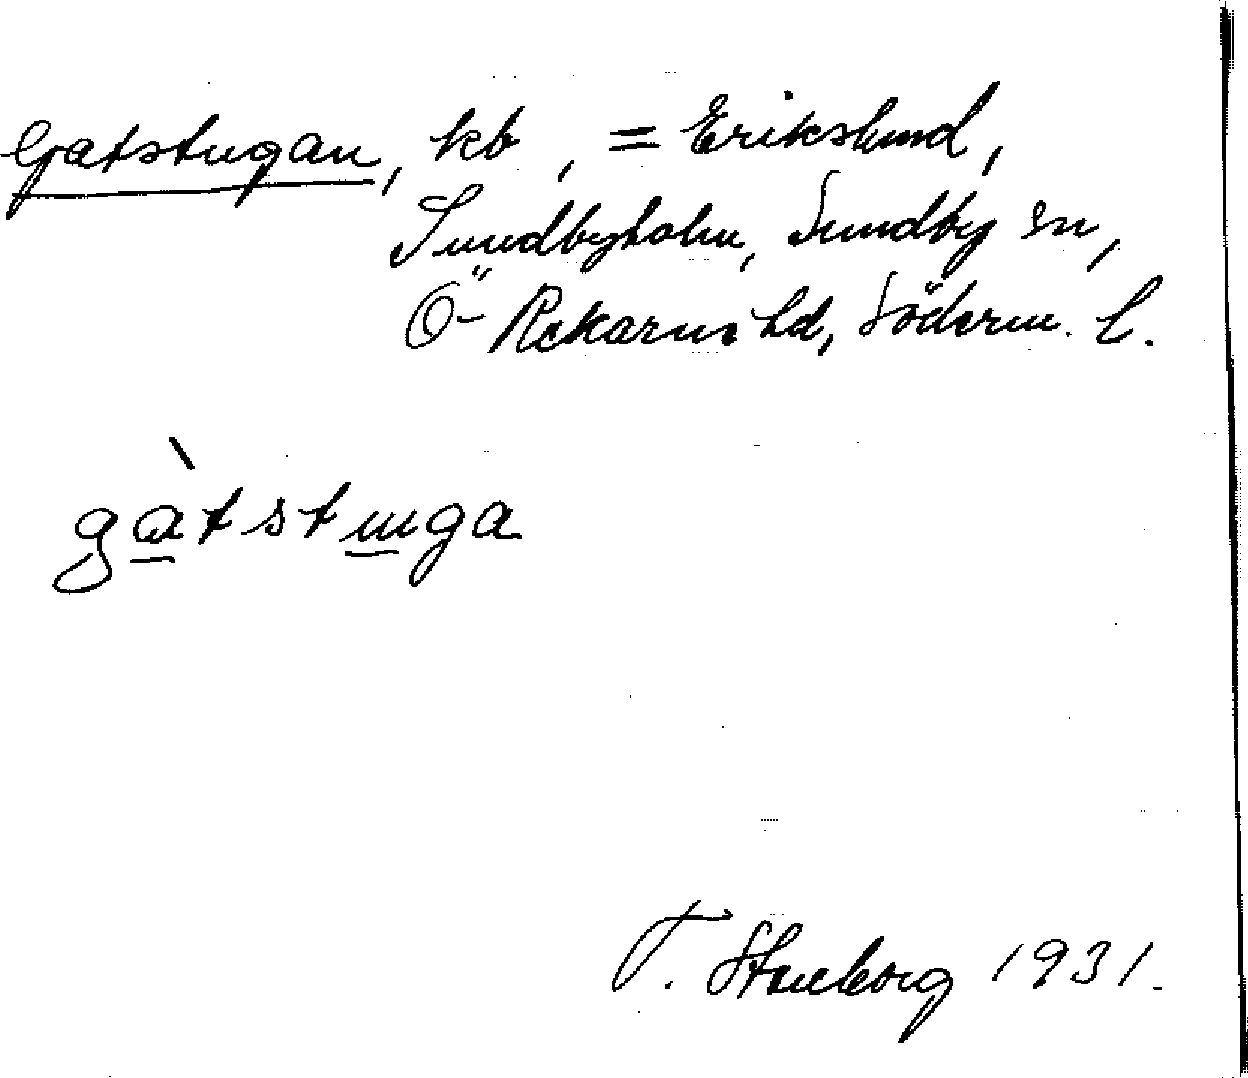 Gatstugan, kb, = Erikslund,
Sundbyholm, Sundby sn,
Ö- Rekarne hd, Söderm. l.
gàtstuga
T. 1931.